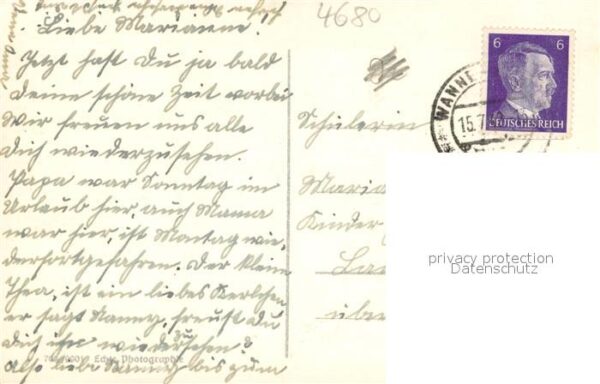 4680
Liebe Marianne!
Jetzt hast Du ja bald
Deine schöne Zeit vorbei
Wir freuen uns alle
Dich wiederzusehen.
Papa war Sonntag in
Urlaub hier, auch Mama
war hier, ist Montag wie-
derfortgefahren. Der kleine
Theo, ist ein liebes Kerlchen
er sagt Nanny, freust Du
Dich ihn wiedersehen?
zu
Also liebe Nanny bis zum
Echte Photographie
Schülerin
Maria
Kinder
über
6 6
DEUTSCHES REICH
WANNE
15.7
privacy protection
Datenschutz